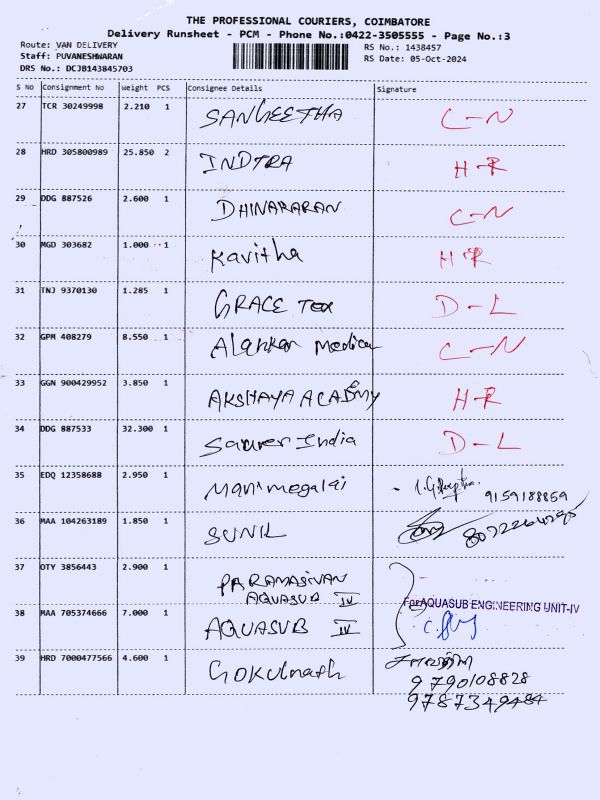 THE PROFESSIONAL COURIERS, COIMBATORE
Delivery Runsheet - PCM - Phone No.:0422-3505555 - Page No.:3
Route: VAN DELIVERY RS No.: 1438457
Staff: PUVANESHWARAN RS Date: 05-Oct-2024
DRS No.: DCJB143845703
S No Consignment No Weight PCS Consignee Details Signature
27 TCR 30249998 2.210 1 SANGEETHA C-N
28 HRD 305800989 25.850 2 INDTRA H-R
29 DDG 887526 2.600 1 DHINARARAN C-N
30 MGD 303682 1.000 1 Kavitha H R
31 TNJ 9370130 1.285 1 GRACE Tex D-L
32 GPM 408279 8.550 1 Alankar Medical C-N
33 GGN 900429952 3.850 1 AKSHAYA ACADEMY H-R
34 DDG 887533 32.300 1 Saurer India D-L
35 EDQ 12358688 2.950 1 Manimegalai 9159188859
36 MAA 104263189 1.850 1 SUNIL
37 OTY 3856443 2.900 1 PARAMASIVAN
AQUASUB IV
For AQUASUB ENGINEERING UNIT-IV
38 MAA 705374666 7.000 1 AQUASUB IV
39 HRD 7000477566 4.600 1 Gokulnath
9790108828
9787349484